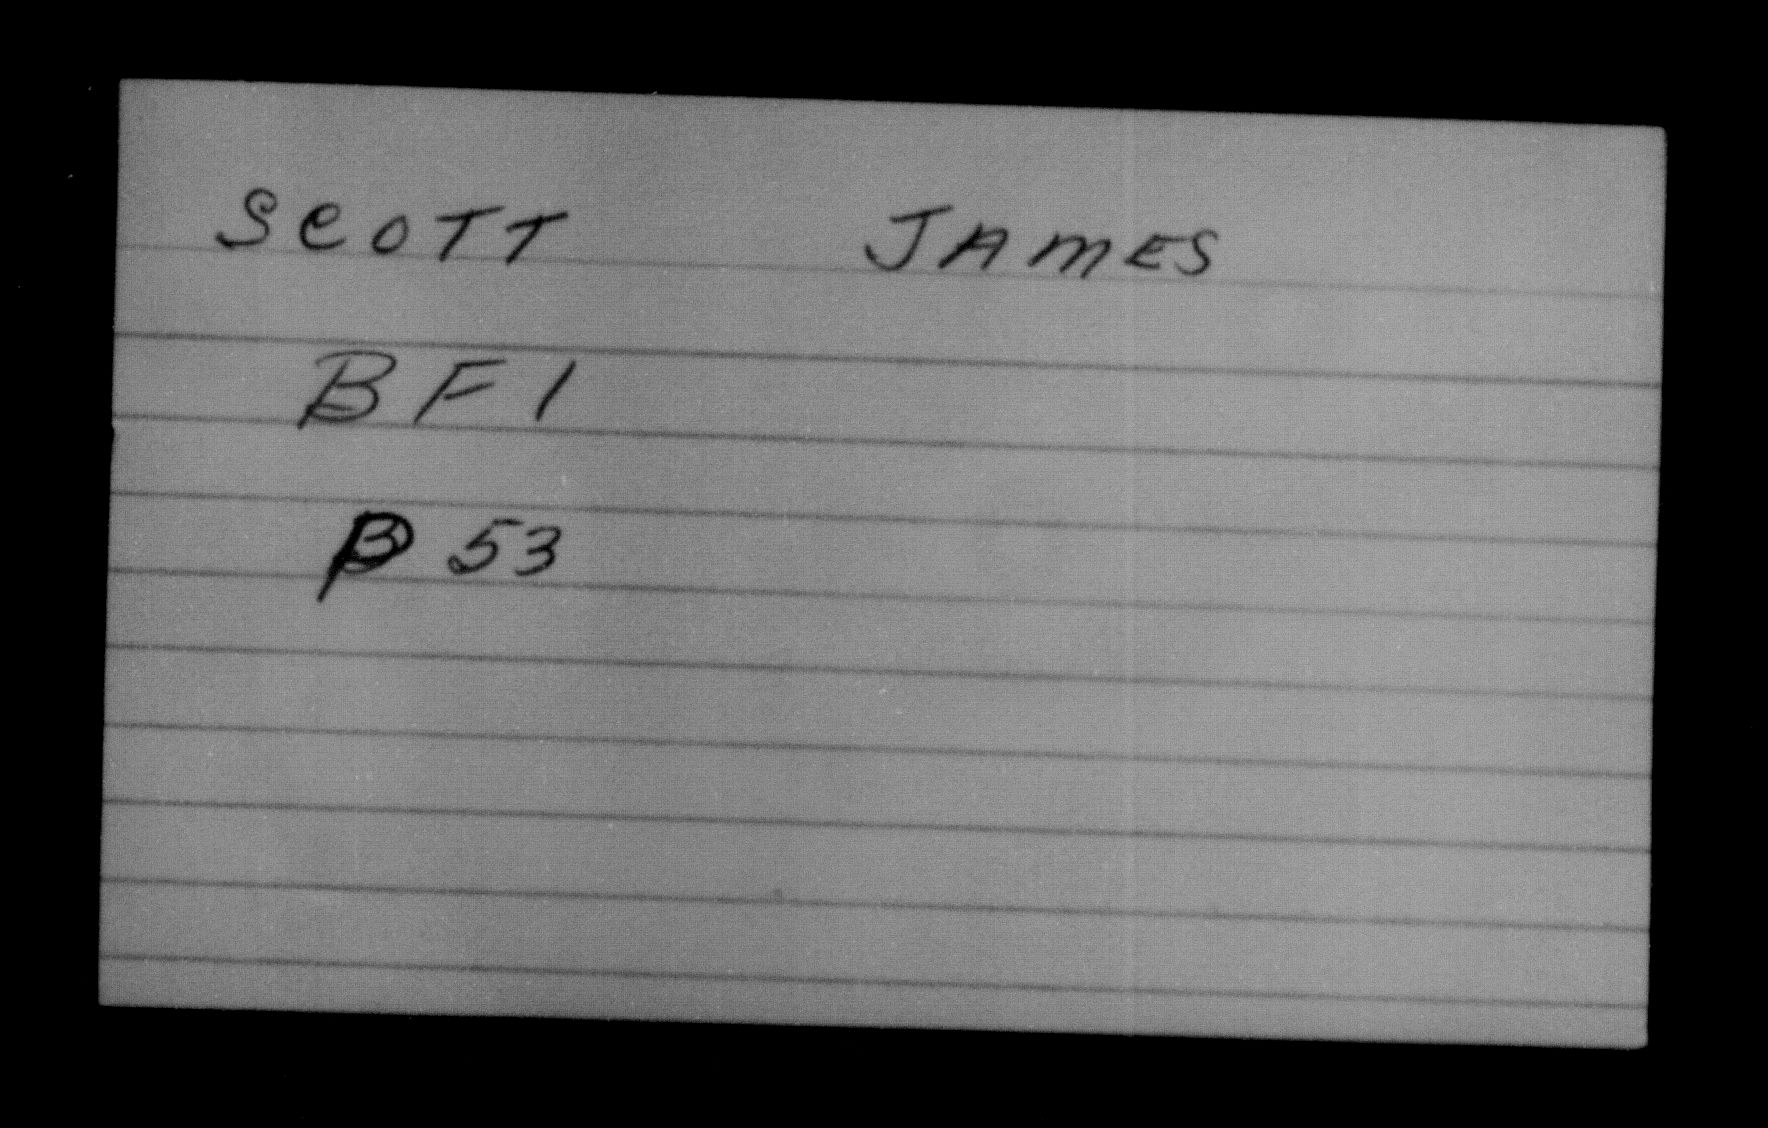 SCOTT JAMES
BF1
P 53